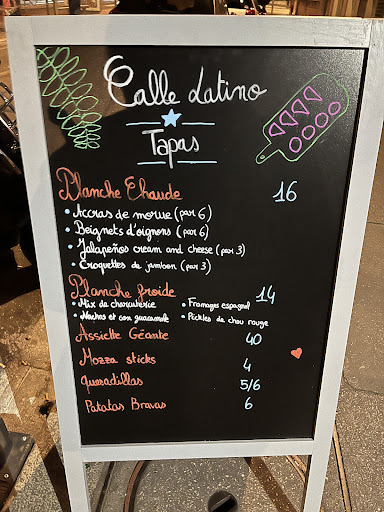 Calle Latino
Tapas
Planche Chaude 16
• Accras de morue (par 6)
• Beignets d'oignons (par 6)
• Jalapeños cream and cheese (par 3)
• Croquettes de jambon (par 3)
Planche froide 14
• Mix de charcuterie • Fromages espagnol
• Nachos et son guacamole • Pickles de chou rouge
Assiette Géante 40
Mozza sticks 4
quesadillas 5/6
Patatas Bravas 6